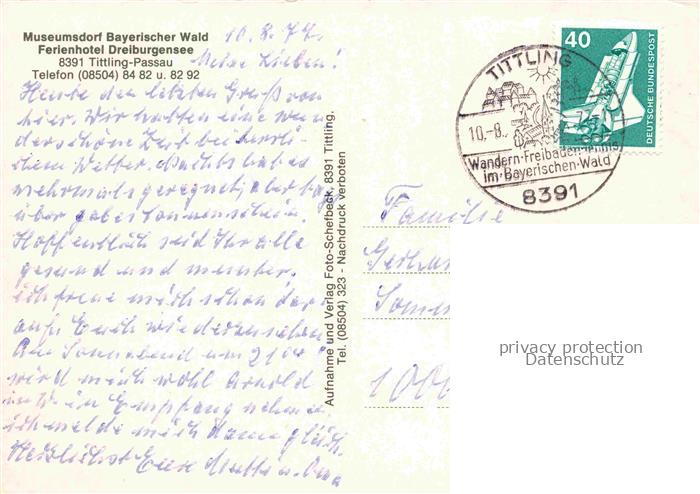 Museumsdorf Bayerischer Wald
Ferienhotel Dreiburgensee
8391 Tittling-Passau
Telefon (08504) 84 82 u. 82 92
10.8.77.
Meine Lieben!
Heute den letzten Gruß von
hier. Wir hatten eine wun
derschöne Zeit bei herrli-
chem Wetter. Nachts hat es
mehrmals geregnet, aber tags
über gab es Sonnenschein.
Hoffentlich seid Ihr alle
gesund und munter.
Ich freue mich schon dar-
auf, Euch wiederzusehen.
Am Sonnabend um 21
wird mich wohl Arnold
in Empfang nehmen
ich melde mich dann gleich.
Herzlichst Eure Mutti u. Oma
Aufnahme und Verlag Foto-Schefbeck, 8391 Tittling,
Tel. (08504) 323 - Nachdruck verboten
40
DEUTSCHE BUNDESPOST
TITTLING
10.-8.
Wandern·Freibaden·Tennis
im·Bayerischen·Wald
8391
Familie
Gerhar
Somm
1000
privacy protection
Datenschutz